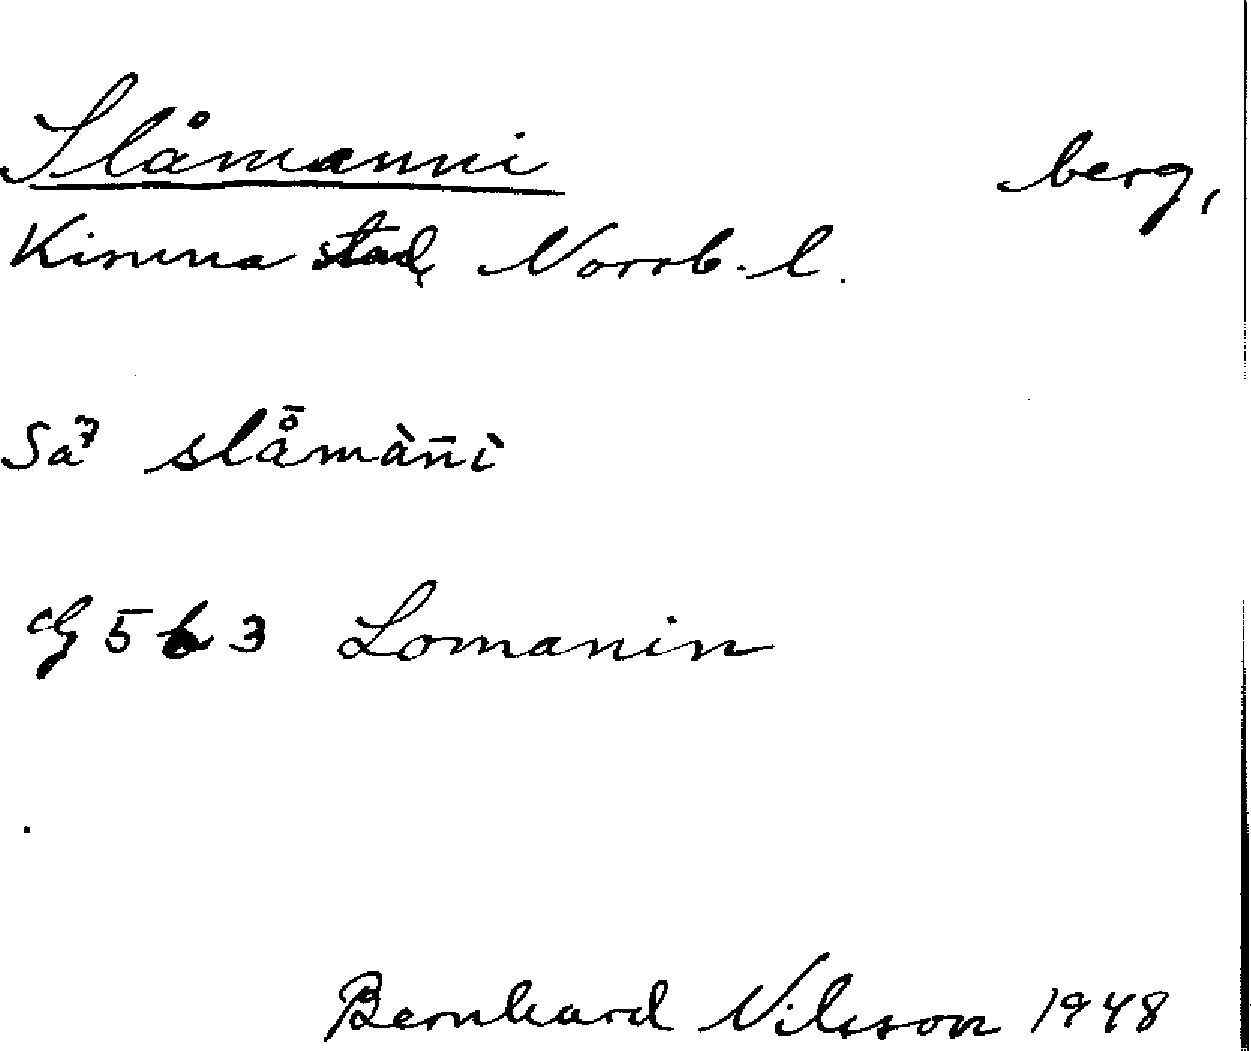 Slåmanni berg,
Kiruna stad, Norrb. l.
Sa⁷ slå̄màn̄ì
G 5 b 3 Lomanin
Bernhard Nilsson 1948